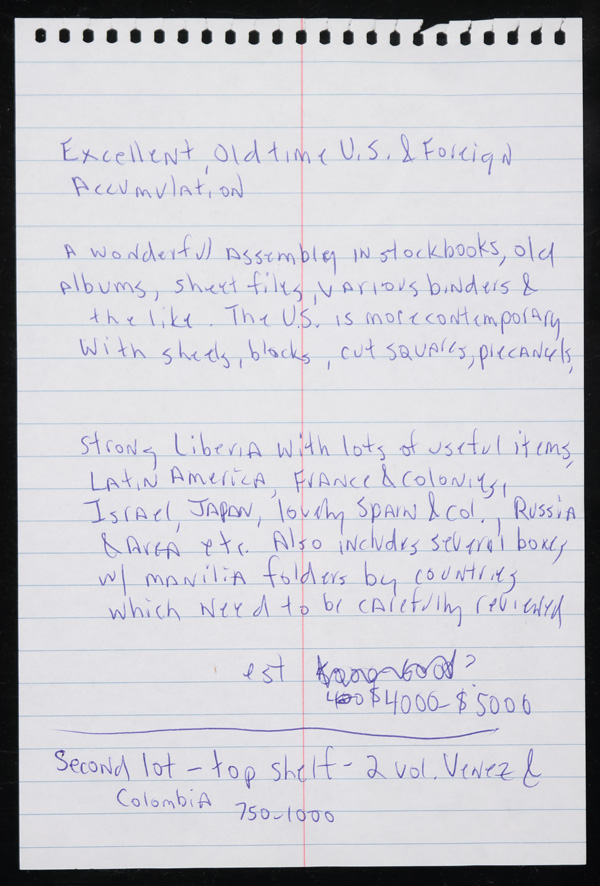 Excellent, Old time U.S. & Foreign
Accumulation
A wonderful Assembly in stockbooks, old
Albums, sheet files, various binders &
the like. The U.S. is more contemporary
With sheets, blocks, cut squares, precancels,
strong Liberia with lots of useful items,
Latin America, France & Colonies,
Israel, Japan, lovely Spain & Col., Russia
& Area etc. Also includes several boxes
w/ manilia folders by countries
which need to be carefully reviewed
est
$4000-$5000
Second lot - top shelf - 2 vol. Venez &
Colombia 750-1000